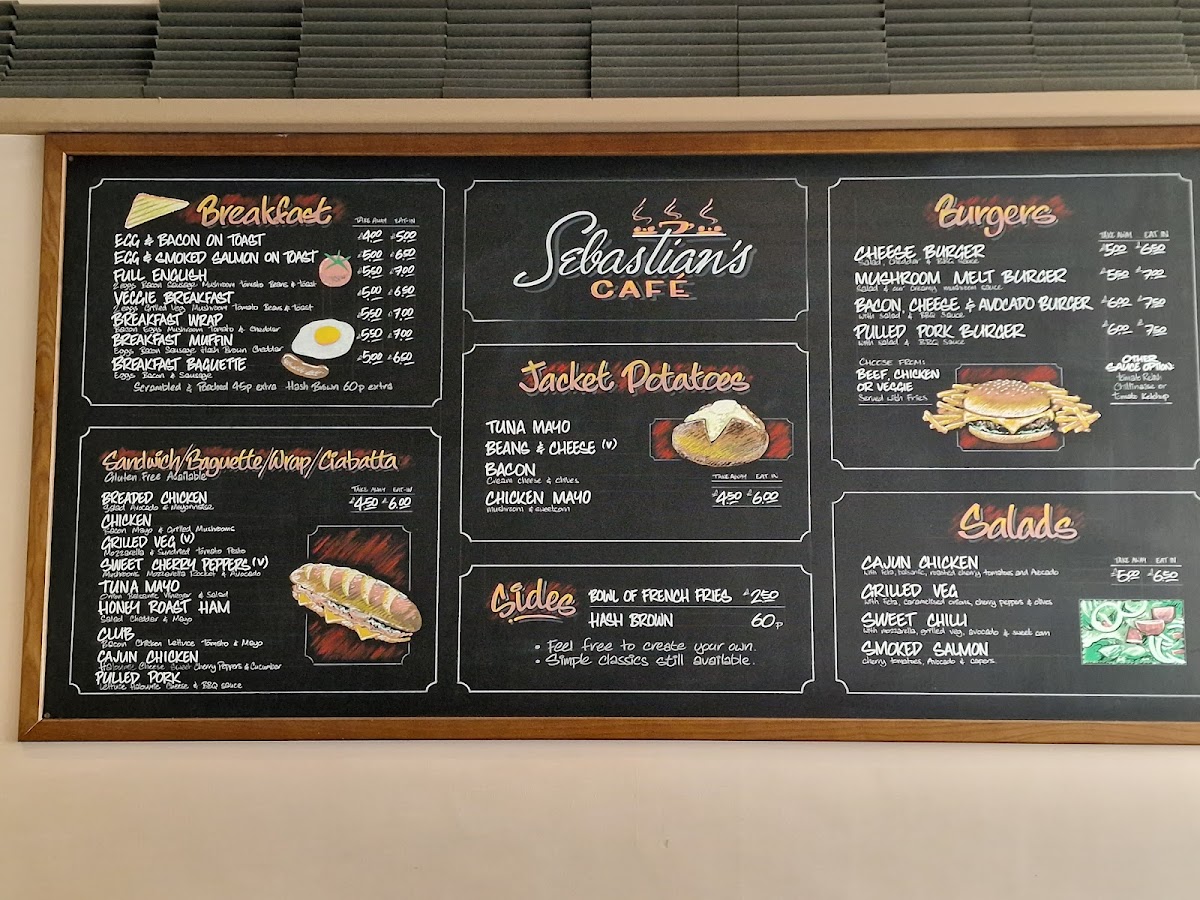 Breakfast
TAKE AWAY EAT-IN
EGG & BACON ON TOAST £4.00 £5.00
EGG & SMOKED SALMON ON TOAST £5.00 £6.50
FULL ENGLISH £5.50 £7.00
2 eggs Bacon Sausage Mushroom Tomato Beans & Toast
VEGGIE BREAKFAST £5.00 £6.50
2 eggs Grilled Veg Mushroom Tomato Beans & Toast
BREAKFAST WRAP £5.50 £7.00
Bacon Eggs Mushroom Tomato & Cheddar
BREAKFAST MUFFIN £5.50 £7.00
Eggs Bacon Sausage Hash Brown Cheddar
BREAKFAST BAGUETTE £5.00 £6.50
Eggs Bacon & Sausage
Scrambled & Poached 45p extra Hash Brown 60p extra
Sandwich/Baguette/Wrap/Ciabatta
Gluten Free Available
TAKE AWAY EAT-IN
£4.50 £6.00
BREADED CHICKEN
Salad Avocado & Mayonnaise
CHICKEN
Bacon Mayo & Grilled Mushrooms
GRILLED VEG (V)
Mozzarella & Sundried Tomato Pesto
SWEET CHERRY PEPPERS (V)
Mushrooms Mozzarella Rocket & Avocado
TUNA MAYO
Onion Balsamic Vinegar & Salad
HONEY ROAST HAM
Salad Cheddar & Mayo
CLUB
Bacon Chicken Lettuce Tomato & Mayo
CAJUN CHICKEN
Halloumi Cheese Sweet Cherry Peppers & Cucumber
PULLED PORK
Lettuce Halloumi Cheese & BBQ sauce
Sebastian's
CAFÉ
Jacket Potatoes
TUNA MAYO
BEANS & CHEESE (V)
BACON
Cream cheese & chives
CHICKEN MAYO
mushroom & sweetcorn
TAKE AWAY EAT IN
£4.50 £6.00
Sides
BOWL OF FRENCH FRIES £2.50
HASH BROWN 60p
• Feel free to create your own.
• Simple classics still available.
Burgers
TAKE AWAY EAT IN
CHEESE BURGER £5.00 £6.50
Salad Cheddar & BBQ Sauce
MUSHROOM MELT BURGER £5.50 £7.00
Salad & our creamy mushroom sauce
BACON CHEESE & AVOCADO BURGER £6.00 £7.50
with salad & BBQ Sauce
PULLED PORK BURGER £6.00 £7.50
with salad & BBQ Sauce
CHOOSE FROM:
BEEF, CHICKEN
OR VEGGIE
Served with Fries
OTHER
SAUCE OPTION:
tomato Relish
or
tomato Ketchup
Salads
TAKE AWAY EAT IN
£5.00 £6.50
CAJUN CHICKEN
with feta, balsamic, roasted cherry tomatoes and Avocado
GRILLED VEG
with feta, caramelised onions, cherry peppers & olives
SWEET CHILLI
with mozzarella, grilled veg, avocado & sweet corn
SMOKED SALMON
cherry tomatoes, Avocado & capers